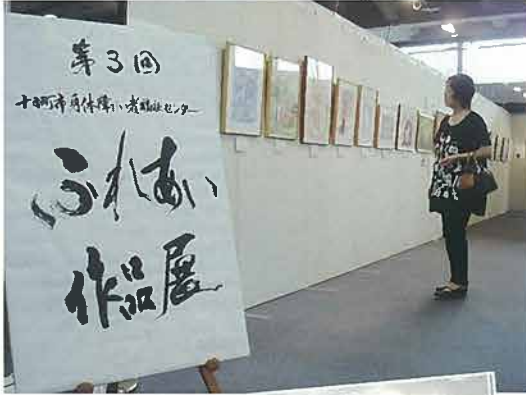 第3回
十日町市身体障い者福祉センター
ふれあい
作品展